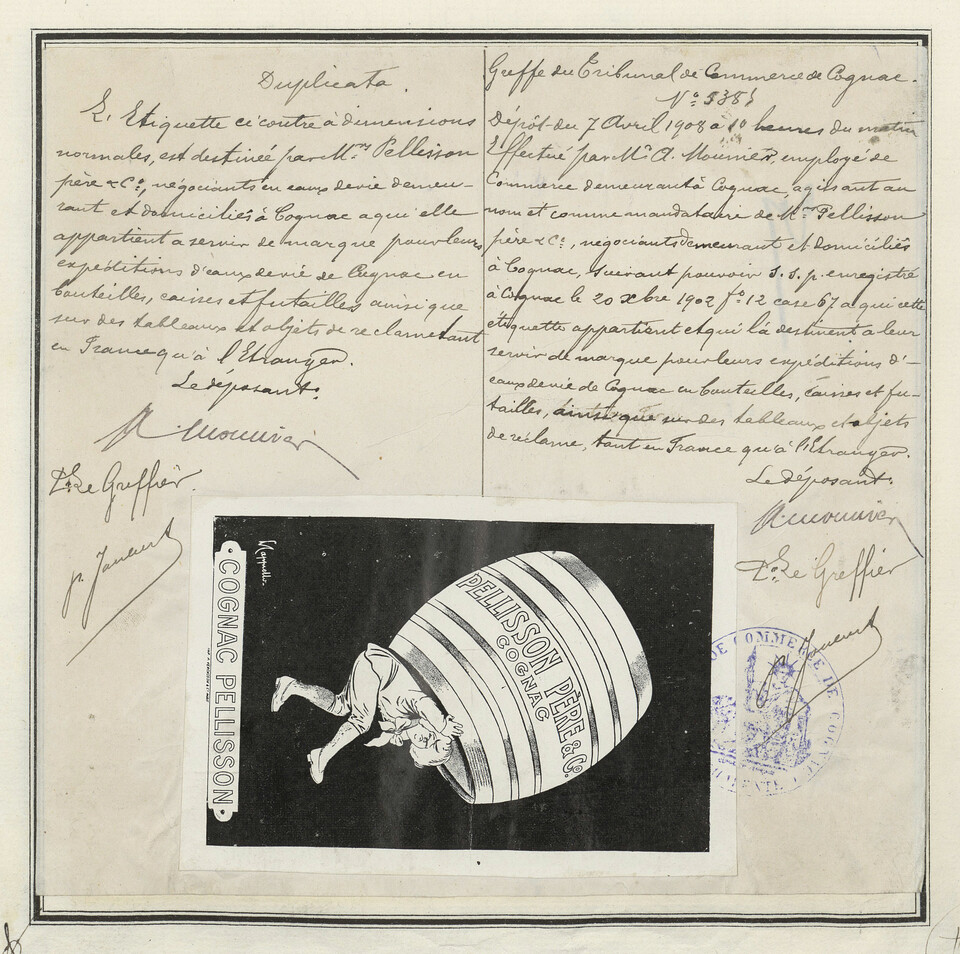 Duplicata.
L'Etiquette ci contre à dimensions
normales, est destinée par Mrs Pellisson
père & Co, négociants en eaux de vie demeu-
rant et domiciliés à Cognac a qui elle
appartient a servir de marque pour leurs
expéditions d'eaux de vie de Cognac en
bouteilles, caisses et futailles ainsi que
sur des tableaux et objets de reclame tant
en France qu'à l'Etranger.
Le déposant:
A. Mounier
Le Greffier
Greffe du Tribunal de Commerce de Cognac.
Dépôt du 7 Avril 1908 a 10 heures du matin
Effectué par Mr A. Mounier, employé de
Commerce demeurant à Cognac, agissant au
nom et comme mandataire de Mrs Pellisson
père & Co, négociants demeurant et domiciliés
à Cognac, suivant pouvoir s. s. p. enregistré
à Cognac le 20 xbre 1902 fo 12 case 67 a qui cette
étiquette appartient et qui la destinent a leur
servir de marque pour leurs expéditions d'-
eaux de vie de Cognac en bouteilles, caisses et fu-
tailles, ainsi que sur des tableaux et objets
de réclame, tant en France qu'à l'Etranger.
Le déposant:
A. Mounier
Le Greffier
COGNAC PELLISSON
Cappiello
PELLISSON PÈRE & Co.
COGNAC
DE COMMERCE DE COGNAC